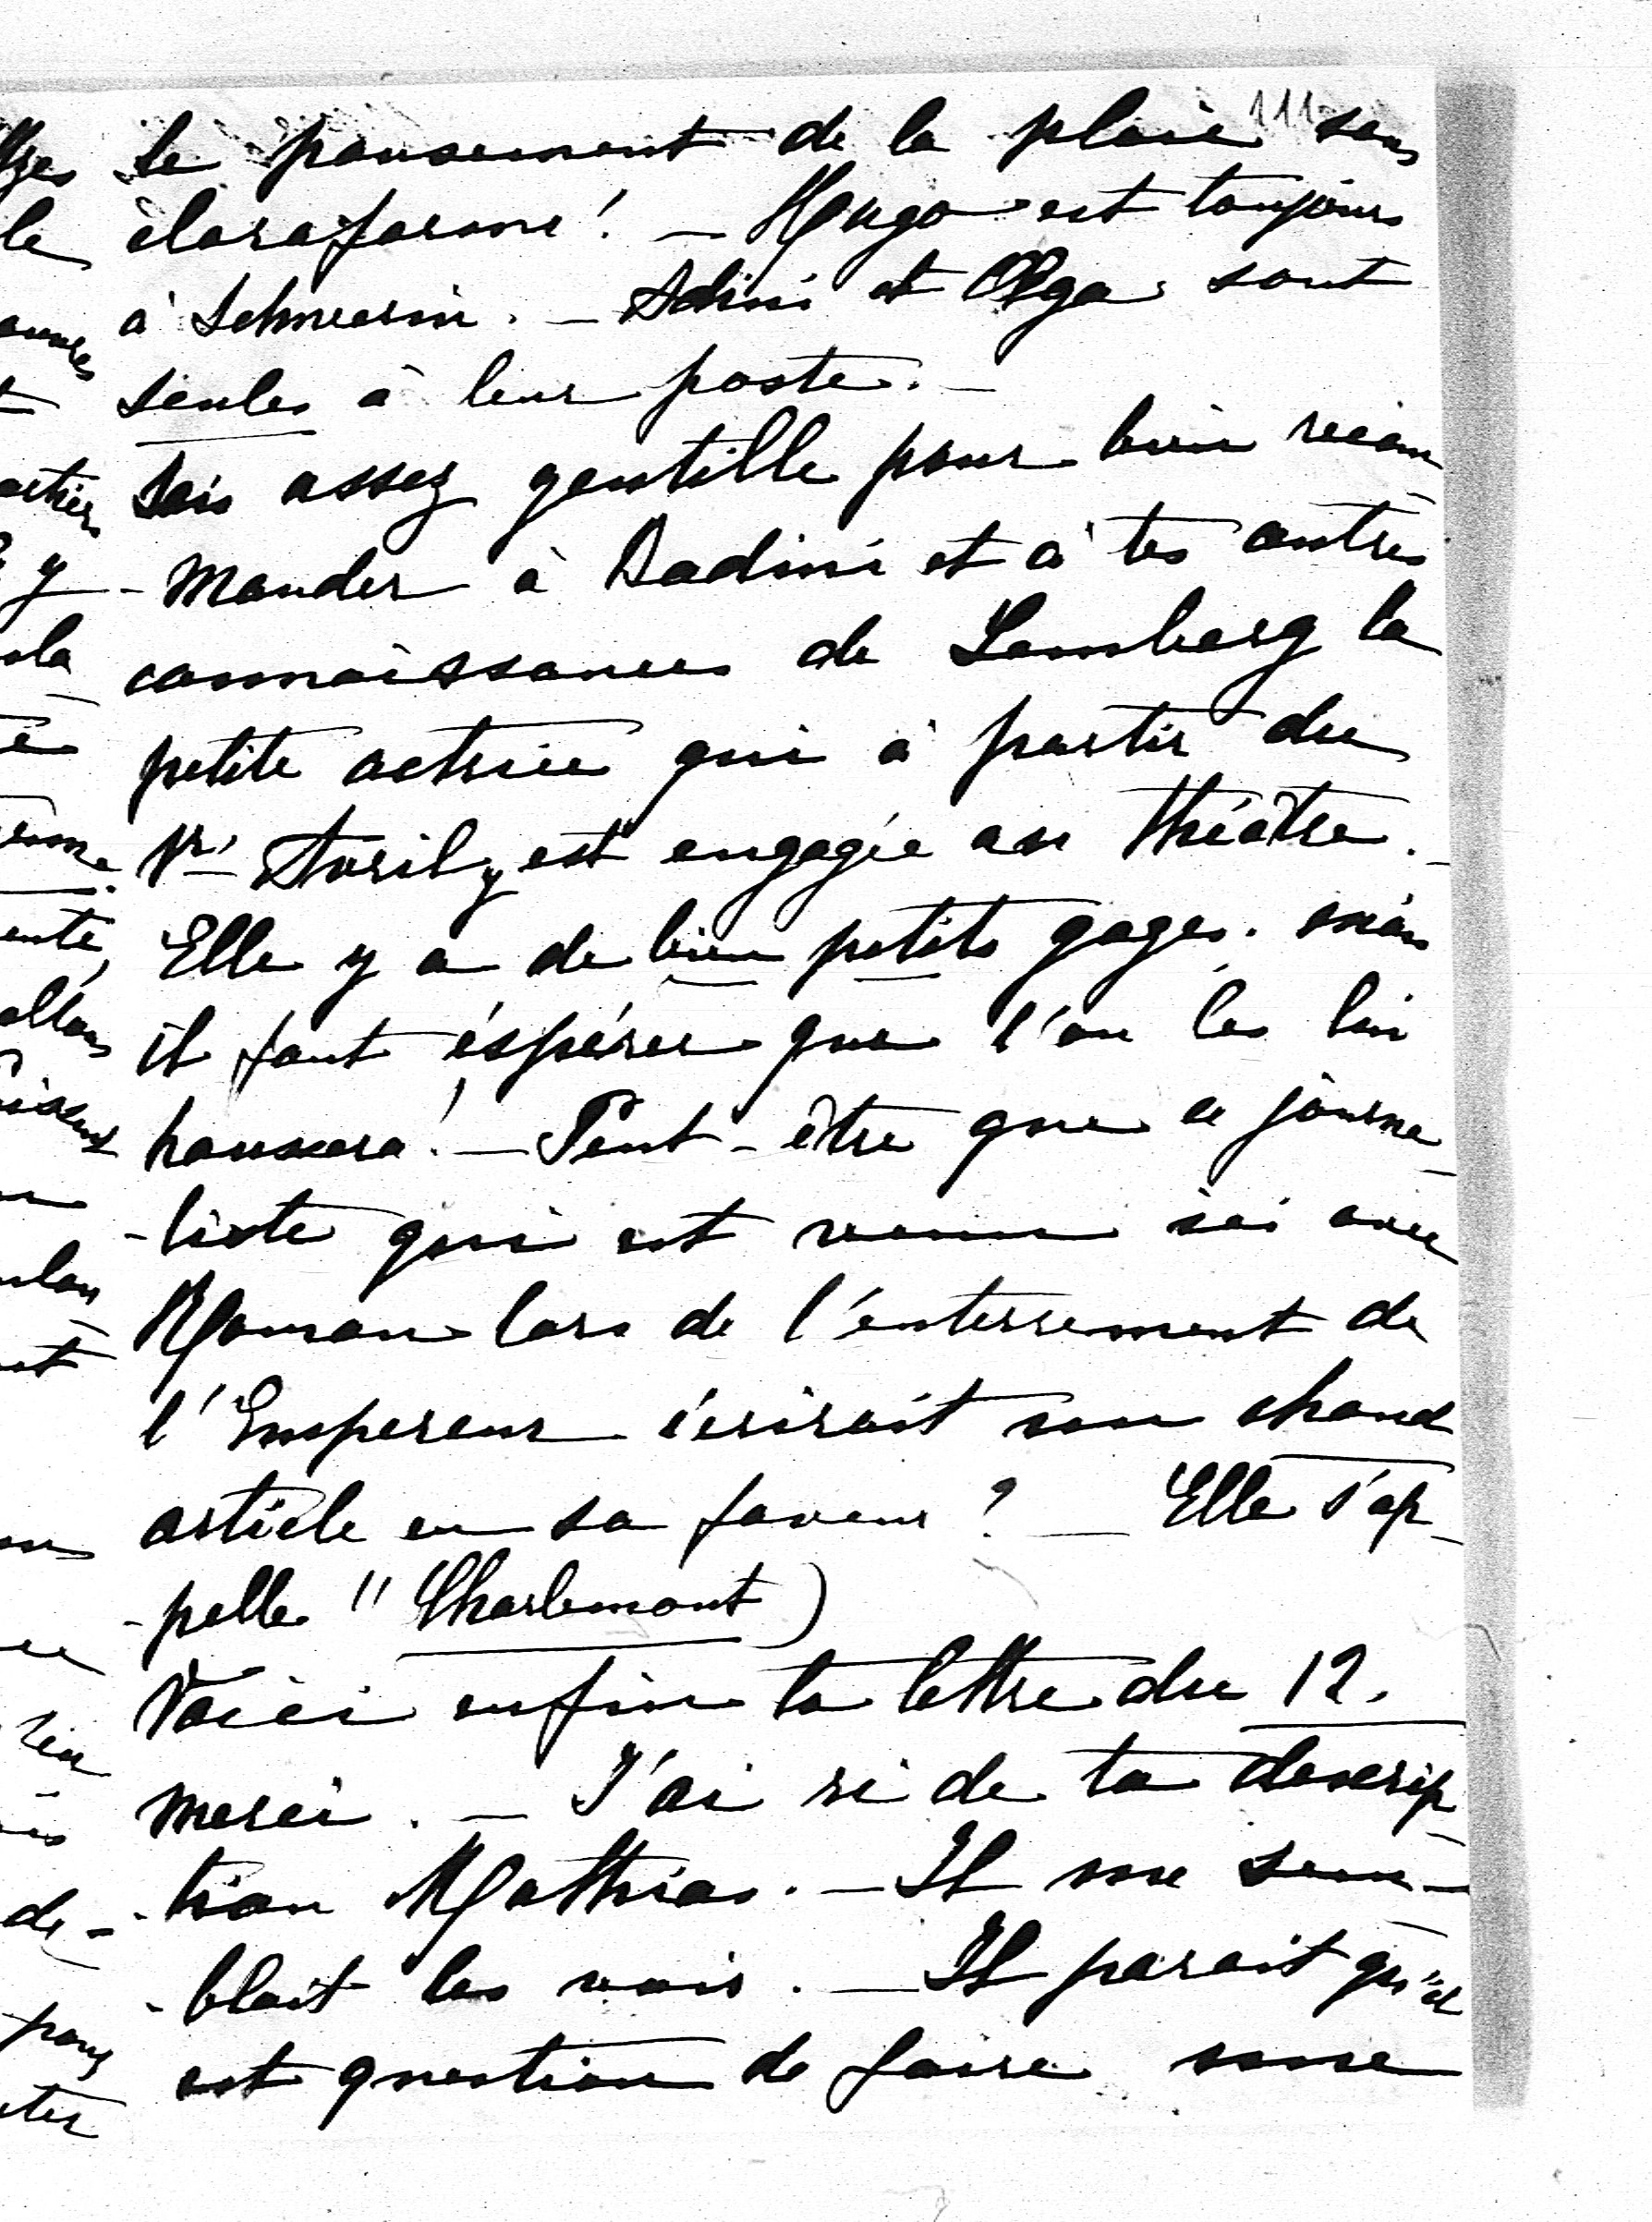 111
le pansement de la plaie sans
cloroforme! — Hugo est toujours
à Schwerin. — Adini et Olga sont
seules à leur poste. —
Sois assez gentille pour bien recom
- mander à Dadini et à tes autres
connaissances de Lemberg la
petite actrice qui à partir du
1er Avril y est engagée au théâtre. —
Elle y a de bien petits gages. mais
il faut éspérer que l'on les lui
haussera! — Peut-être que ce journa-
-liste qui est venu ici avec
Roman lors de l'enterrement de
l'Empereur écrirait un chaud
article en sa faveur? — Elle s'ap-
-pelle "Charlemont)
Voici enfin ta lettre du 12.
merci. — J'ai ri de ta descrip
-tion Mathias. — Il me sem-
-blait les voir. — Il parait qu'il
est question de faire une